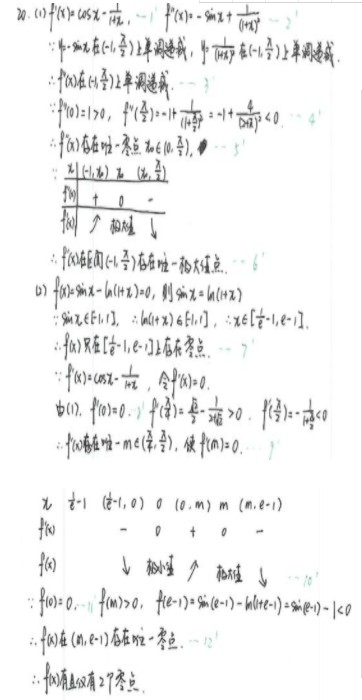 20. (1) f'(x)=cosx-1/(1+x), --1' f''(x)=-sinx+1/(1+x)² --2'
∵ y=-sinx在(-1,π/2)上单调递减, y=1/(1+x)²在(-1,π/2)上单调递减
∴ f''(x)在(-1,π/2)上单调递减. --3'
∵ f''(0)=1>0, f''(π/2)=-1+1/(1+π/2)²=-1+4/(2+π)²<0. --4'
∴ f''(x)存在唯一零点x₀∈(0,π/2), --5'
∴ x (-1,x₀) x₀ (x₀,π/2)
f''(x) + 0 -
f'(x) ↗ 极大值 ↓
∴ f'(x)在区间(-1,π/2)存在唯一极大值点. --6'
(2) f(x)=sinx-ln(1+x)=0, 则sinx=ln(1+x)
∵ sinx∈[-1,1], ∴ ln(1+x)∈[-1,1], ∴ x∈[1/e-1,e-1].
∴ f(x)只在[1/e-1,e-1]上存在零点. --7'
∵ f'(x)=cosx-1/(1+x), 令f'(x)=0.
由(1), f'(0)=0 f'(π/2)=-1/(1+π/2)<0
∴ f'(x)存在唯一m∈(π/4,π/2), 使f'(m)=0. --9'
x 1/e-1 (1/e-1,0) 0 (0,m) m (m,e-1)
f'(x) - 0 + 0 -
f(x) ↓ 极小值 ↗ 极大值 ↓ --10'
∵ f(0)=0, --11' f(m)>0, f(e-1)=sin(e-1)-ln(1+e-1)=sin(e-1)-1<0
∴ f(x)在(m,e-1)存在唯一零点 --12'
∴ f(x)有且仅有2个零点.